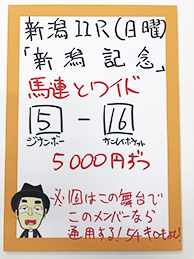 新潟11R(日曜)
「新潟記念」
馬連とワイド
5 - 16
ジナンボー カデナ
5000円ずつ
※16はこの舞台で
このメンバーなら
通用する!54キロも